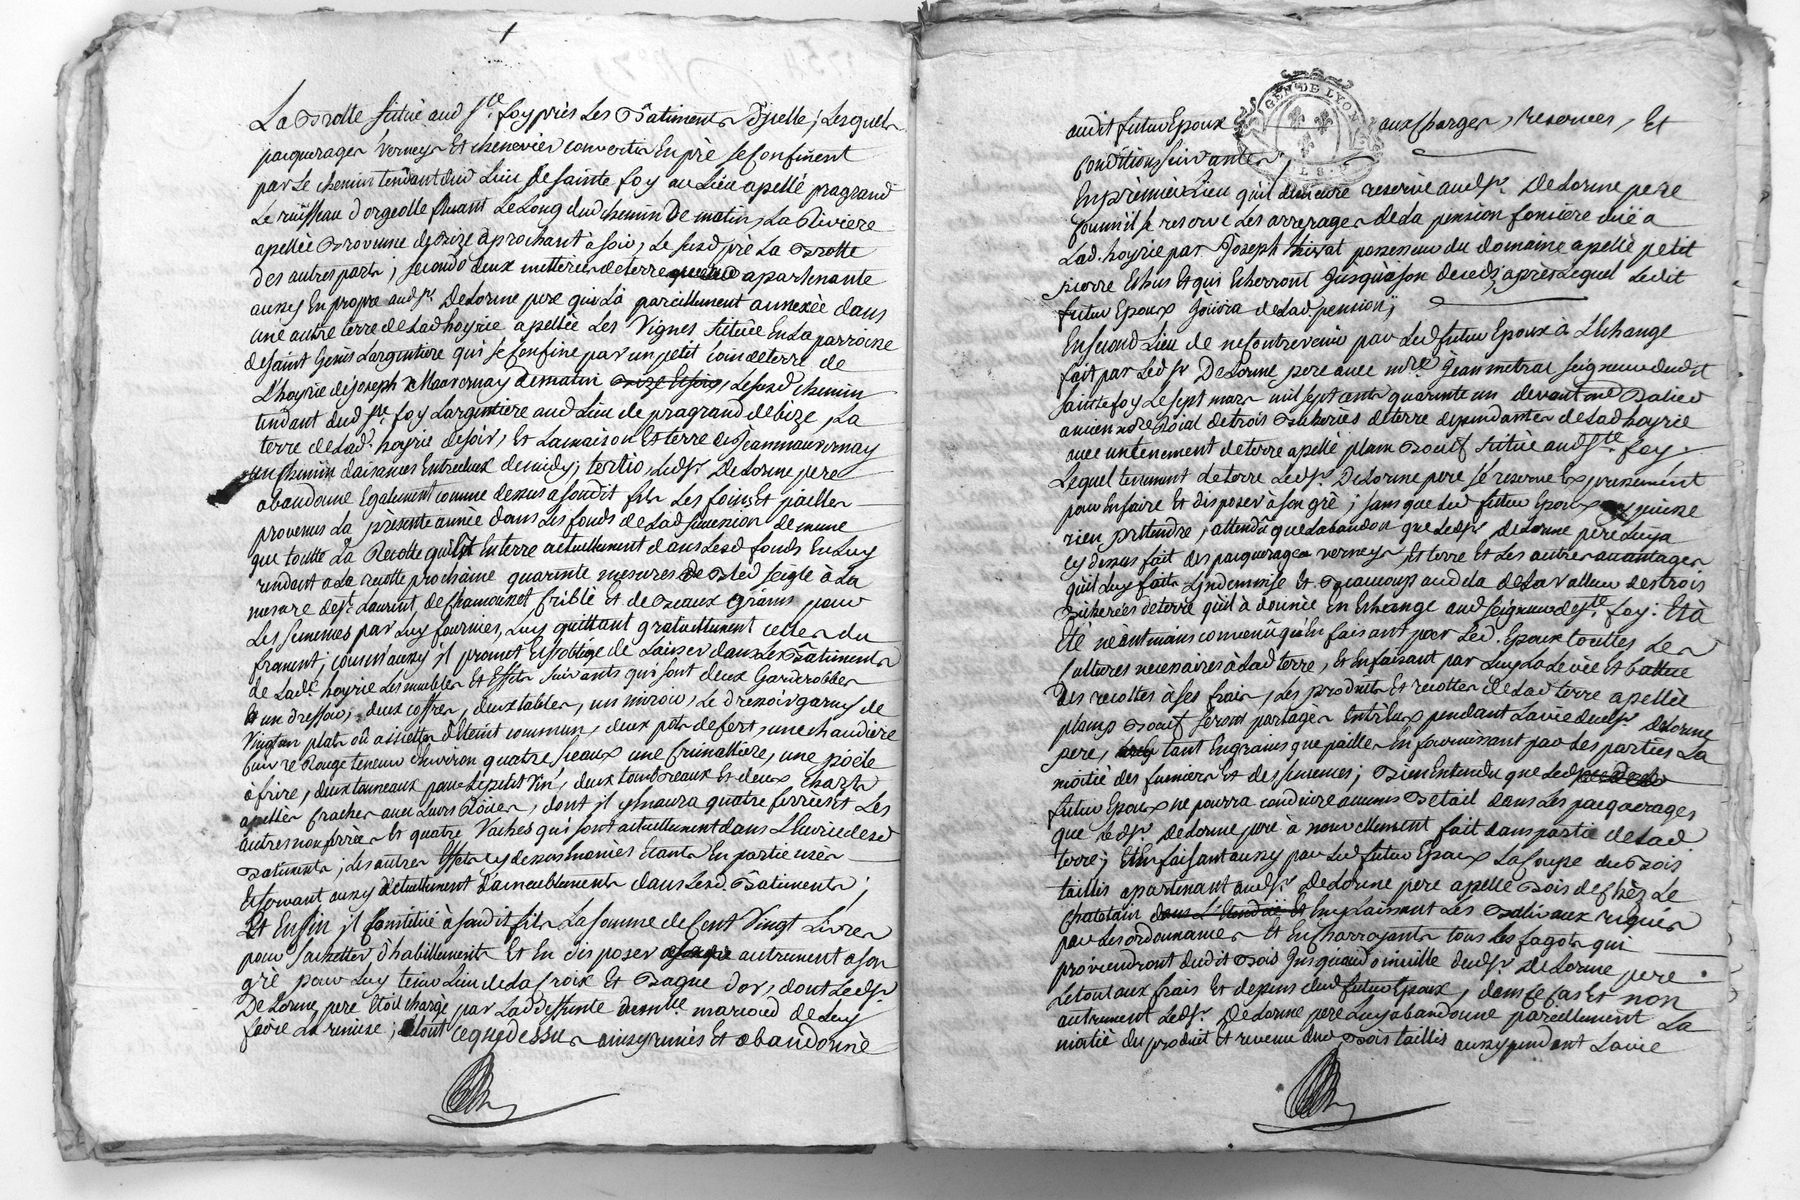 La Brotte situé aud Ste. foy près Les Batiments d'jcelle; Lesquels
paquerages verneys Et chenevier convertis En pré se confinent
par Le chemin tendant dud Lieu de sainte foy au Lieu apellé pragrand
Le ruisseau d'orgeolle fluant Le Long dud chemin De matin, La Riviere
apellée Brovenne de Bize aprochant a soir, Le susd pré La Brotte
des autres parts; secondo deux metterées de terre apartenante
aussy En propre aud Sr. DeLorme pere qui L'à pareillement annexée dans
une autre terre de Lad hoyrie apellée Les Vignes Située En La parroisse
de Saint Genis Largentiere qui se confine par un petit coin de terre de
L'hoyrie de joseph Mauvernay de matin Bize Et soir, Le susd chemin
tendant dud Ste. foy Largentiere aud Lieu de pragrand de bize, La
terre de Lad. hoyrie de soir, Et La maison Et terre de Jean mauvernay
un chemin d'aisances Entredeux de midy; tertio, Led Sr. DeLorme pere
abandonne Egalement comme dessus a sondit fils Les foins Et pailles
provenus La présente année dans Les fonds de Lad succession de meme
que toutte La Recolte qu'il est En terre actuellement dans Lesd fonds En Luy
rendant a La recolte prochaine quarante mesures De Bled seigle à La
mesure de St. Laurent, de Chamousset criblé et de beaux grains pour
Les semences par Luy fournies, Luy quittant gratuitement celles du
froment; comm'aussy il promet Et s'oblige de Laisser dans Les Batiments
de Lade. hoyrie Les meubles Et Effets suivants qui sont deux Garderobbes
Et un dressoir, deux coffres, deux tables, un miroir, Le dressoir garny de
Vingt un plats où assiettes d'Etaint commun, deux pots de fert, une chaudiere
Cuivre Rouge teneur d'Environ quatre seaux une crimalliere, une poële
a frire, deux tonneaux pour Le petit Vin, deux tombreaux Et deux chars
apellés fraches avec Leurs Roües, dont il y En aura quatre ferrées Et Les
autres non ferrées Et quatre Vaches qui sont actuellement dans L'Ecurie desd
Batiments; Les autres Effets cy dessus Enoncés Etants En partie usés
Et servant aussy d'ameublements dans Lesd. Batiments;
Et Enfin il Constitué à sondit fils La somme de Cent Vingt Livres
pour s'achetter d'habillements Et En disposer autrement a son
gré pour Luy tenir Lieu de La Croix Et Bague d'or, dont Led Sr.
DeLorme pere Etoit chargé par Lad Deffunte demlle. marcoud de Luy
faire La remise; tout ce que dessus ainsy remis Et abandonné
audit futur Epoux aux Charges, reserves, Et
Conditions suivantes,
GEN. DE LYON
En prémier Lieu qu'il demeure reservé aud Sr. DeLorme pere
comm'il se reserve Les arrerages de La pension fonsiere düe a
Lad. hoyrie par Joseph thivat possesseur du domaine apellé petit
pierre Echus Et qui Echerront Jusqu'a son decedz, après Lequel Ledit
futur Epoux Jouira de Lad pension;
En second Lieu de ne contrevenir par Led futur Epoux à L'Echange
fait par Led Sr DeLorme pere avec mre. Jean metrat seigneur dudit
sainte foy Le sept mars mil sept cents quarente un devant me. Balieu
ancien nore Roial de trois Bicherées de terre dependantes de Lad hoyrie
avec un tenement de terre apellé plam Boeuf situé aud Ste. foy.
Lequel tenement de terre Led Sr. DeLorme pere se reserve Expressement
pour En faire Et disposer à son gré; sans que Led futur Epoux y puisse
rien prétendre, attendu que L'abandon que Led Sr. DeLorme pere Luy a
cy dessus fait des paquerages verneys, Et terre et Les autres avantages
qu'il Luy fait L'indemnise Et Beaucoup audela de La valleur des trois
Bicherées de terre qu'il à donnée En Echange aud seigneur de Ste. foy: Et à
Eté néantmoins convenû qu'En faisant par Led. Epoux touttes Les
Cultures necessaires à Lad terre, Et En faisant par Luy La Levée Et battue
Des recoltes a ses frais, Les produits Et recoltes de Lad terre apellée
plamp Boeuf seront partagés Entr'Eux pendant La vie dud Sr. DeLorme
pere, tant En grains que pailles En fournissant par Les parties La
moitié des fumiers Et des semences; Bien Entendu que Led
futur Epoux ne pourra conduire aucuns Betail dans Les paquerages
que Led Sr. DeLorme pere à nouvellement fait dans partie de Lad.
terre; Et En faisant aussy par Led futur Epoux La Coupe du Bois
taillis apartenant aud Sr. DeLorme pere apellé Bois de Chèz Le
Chatelain dans L'Etendüe Et En y Laissant Les Ballivaux requis
par Les ordonnances Et En Charroyant tous Les fagots qui
proviendront dudit Bois Jusqu'au domicille dud Sr. DeLorme pere
Le tout aux frais Et depens dud futur Epoux, dans ce cas Et non
autrement Led Sr. DeLorme pere Luy abandonne pareillement La
moitié du produit Et revenu dud Bois taillis aussy pendant La vie